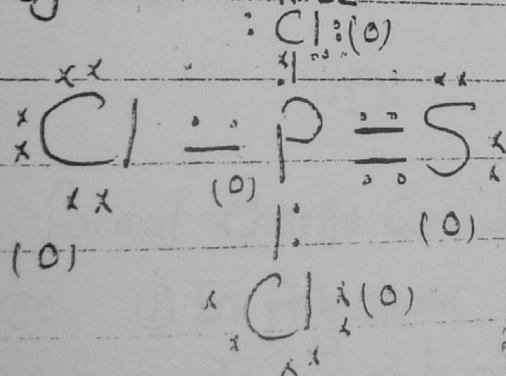 : Cl : (0)
Cl — P = S
(0)
(0)
(0)
Cl (0)